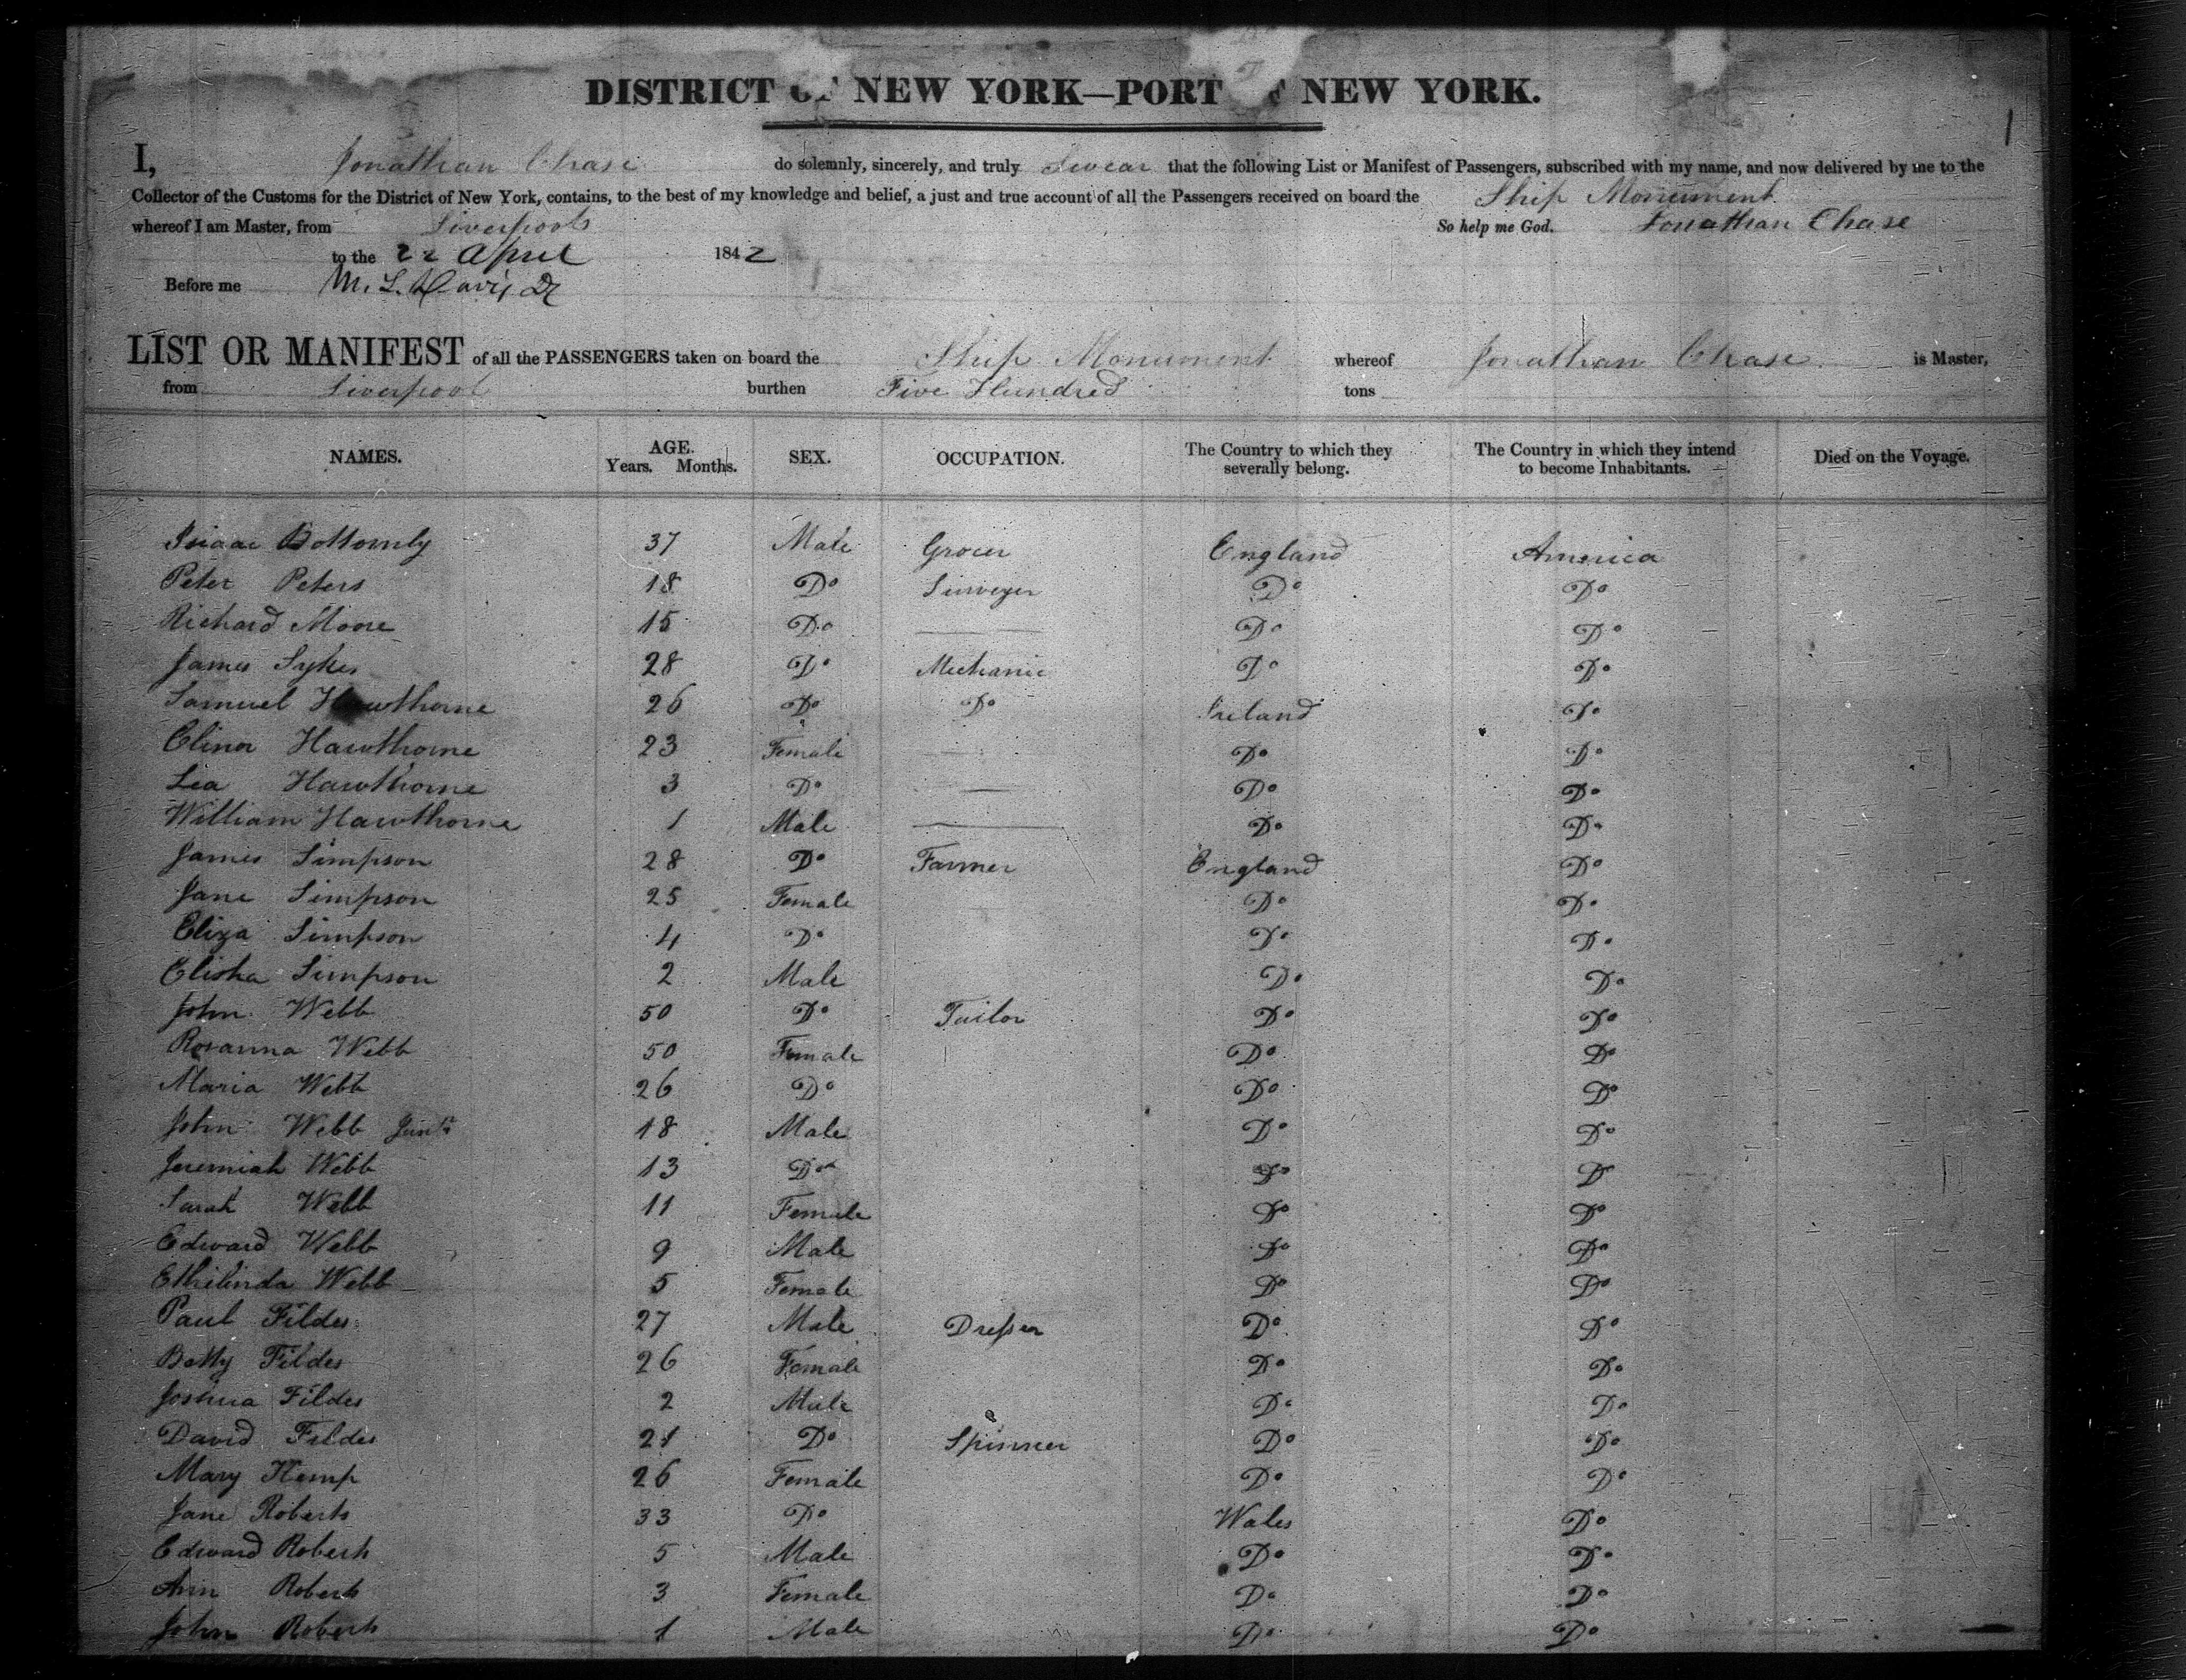 DISTRICT OF NEW YORK—PORT OF NEW YORK.
1
I, Jonathan Chase do solemnly, sincerely, and truly Swear that the following List or Manifest of Passengers, subscribed with my name, and now delivered by me to the
Collector of the Customs for the District of New York, contains, to the best of my knowledge and belief, a just and true account of all the Passengers received on board the Ship Monument
whereof I am Master, from Liverpool So help me God. Jonathan Chase
to the 22 April 1842
Before me M. L. Davis
LIST OR MANIFEST of all the PASSENGERS taken on board the Ship Monument whereof Jonathan Chase is Master,
from Liverpool burthen Five Hundred tons
NAMES. AGE. Years. Months. SEX. OCCUPATION. The Country to which they severally belong. The Country in which they intend to become Inhabitants. Died on the Voyage.
Isaac Bottomly 37 Male Grocer England America
Peter Peters 18 Do Surveyer Do Do
Richard Moore 15 Do — Do Do
James Sykes 28 Do Mechanic Do Do
Samuel Hawthorne 26 Do Do Ireland Do
Elinor Hawthorne 23 Female — Do Do
Lea Hawthorne 3 Do — Do Do
William Hawthorne 1 Male — Do Do
James Simpson 28 Do Farmer England Do
Jane Simpson 25 Female Do Do
Eliza Simpson 4 Do Do Do
Elisha Simpson 2 Male Do Do
John Webb 50 Do Tailor Do Do
Rosanna Webb 50 Female Do Do
Maria Webb 26 Do Do Do
John Webb Junr 18 Male Do Do
Jeremiah Webb 13 Do Do Do
Sarah Webb 11 Female Do Do
Edward Webb 9 Male Do Do
Ethilinda Webb 5 Female Do Do
Paul Fildes 27 Male Dresser Do Do
Betty Fildes 26 Female Do Do
Joshua Fildes 2 Male Do Do
David Fildes 21 Do Spinner Do Do
Mary Hemp 26 Female Do Do
Jane Roberts 33 Do Wales Do
Edward Roberts 5 Male Do Do
Ann Roberts 3 Female Do Do
John Roberts 1 Male Do Do